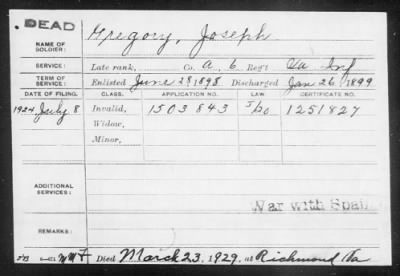 DEAD
NAME OF SOLDIER: Gregory, Joseph
SERVICE: Late rank, Co. A, 6 Reg't Va Inf
TERM OF SERVICE: Enlisted June 28 1898 Discharged Jan 26, 1899
DATE OF FILING. CLASS. APPLICATION NO. LAW CERTIFICATE NO.
1924 July 8 Invalid, 1503843 1251827
Widow,
Minor,
ADDITIONAL SERVICES:
War with Spain
REMARKS:
Died March 23, 1929, at Richmond Va